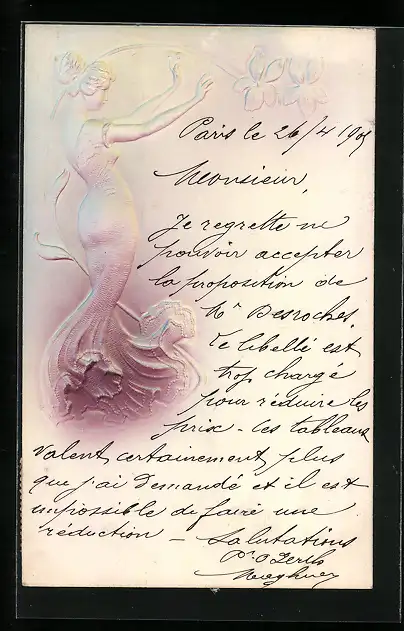 Paris le 26/4 190
Monsieur,
Je regrette ne
pouvoir accepter
la proposition de
Mr Desroches,
le libellé est
trop chargé
pour réduire les
prix - les tableaux
valent certainement plus
que j'ai demandé et il est
impossible de faire une
réduction - Salutations